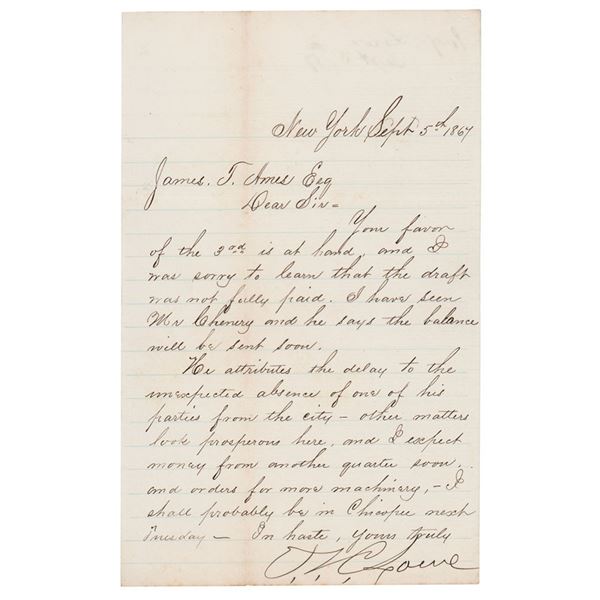 New York Sept 5th 1867
James. T. Ames Esq
Dear Sir=
Your favor
of the 3rd is at hand, and I
was sorry to learn that the draft
was not fully paid. I have seen
Mr Chenery and he says the balance
will be sent soon.
He attributes the delay to the
unexpected absence of one of his
parties from the city – other matters
look prosperous here, and I expect
money from another quarter soon,
and orders for more machinery, – I
shall probably be in Chicopee next
Tuesday – In haste, yours truly
T. S. C. Lowe